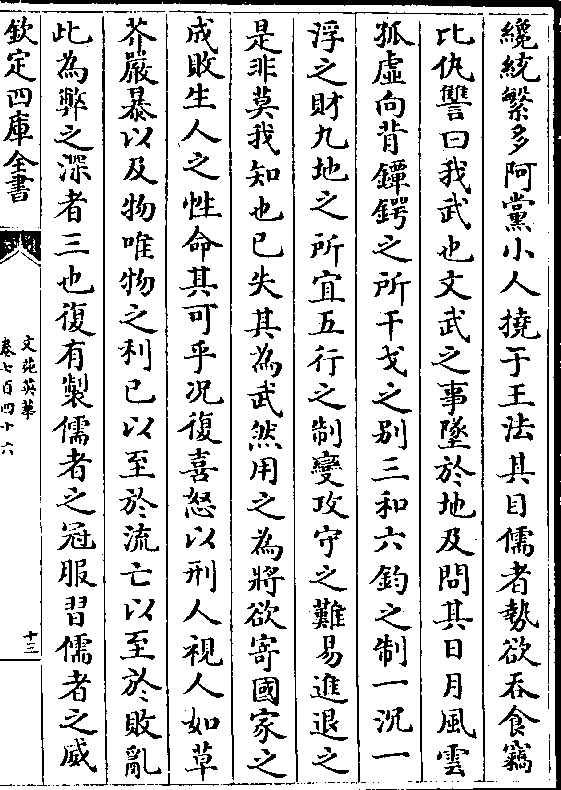 纔統繫多阿黨小人撓于王法其目儒者勢欲吞食竊
比仇讐曰我武也文武之事墜於地及問其日月風雲
狐虛向背鐔鍔之所干戈之别三和六鈞之制一沉一
浮之財九地之所宜五行之制變攻守之難易進退之
是非莫我知也已失其為武然用之為將欲寄國家之
成敗生人之性命其可乎况復喜怒以刑人視人如草
芥嚴暴以及物唯物之利已以至於流亡以至於敗亂
此為弊之深者三也復有製儒者之冠服習儒者之威
欽定四庫全書
文苑英華
卷七百四十六
十三